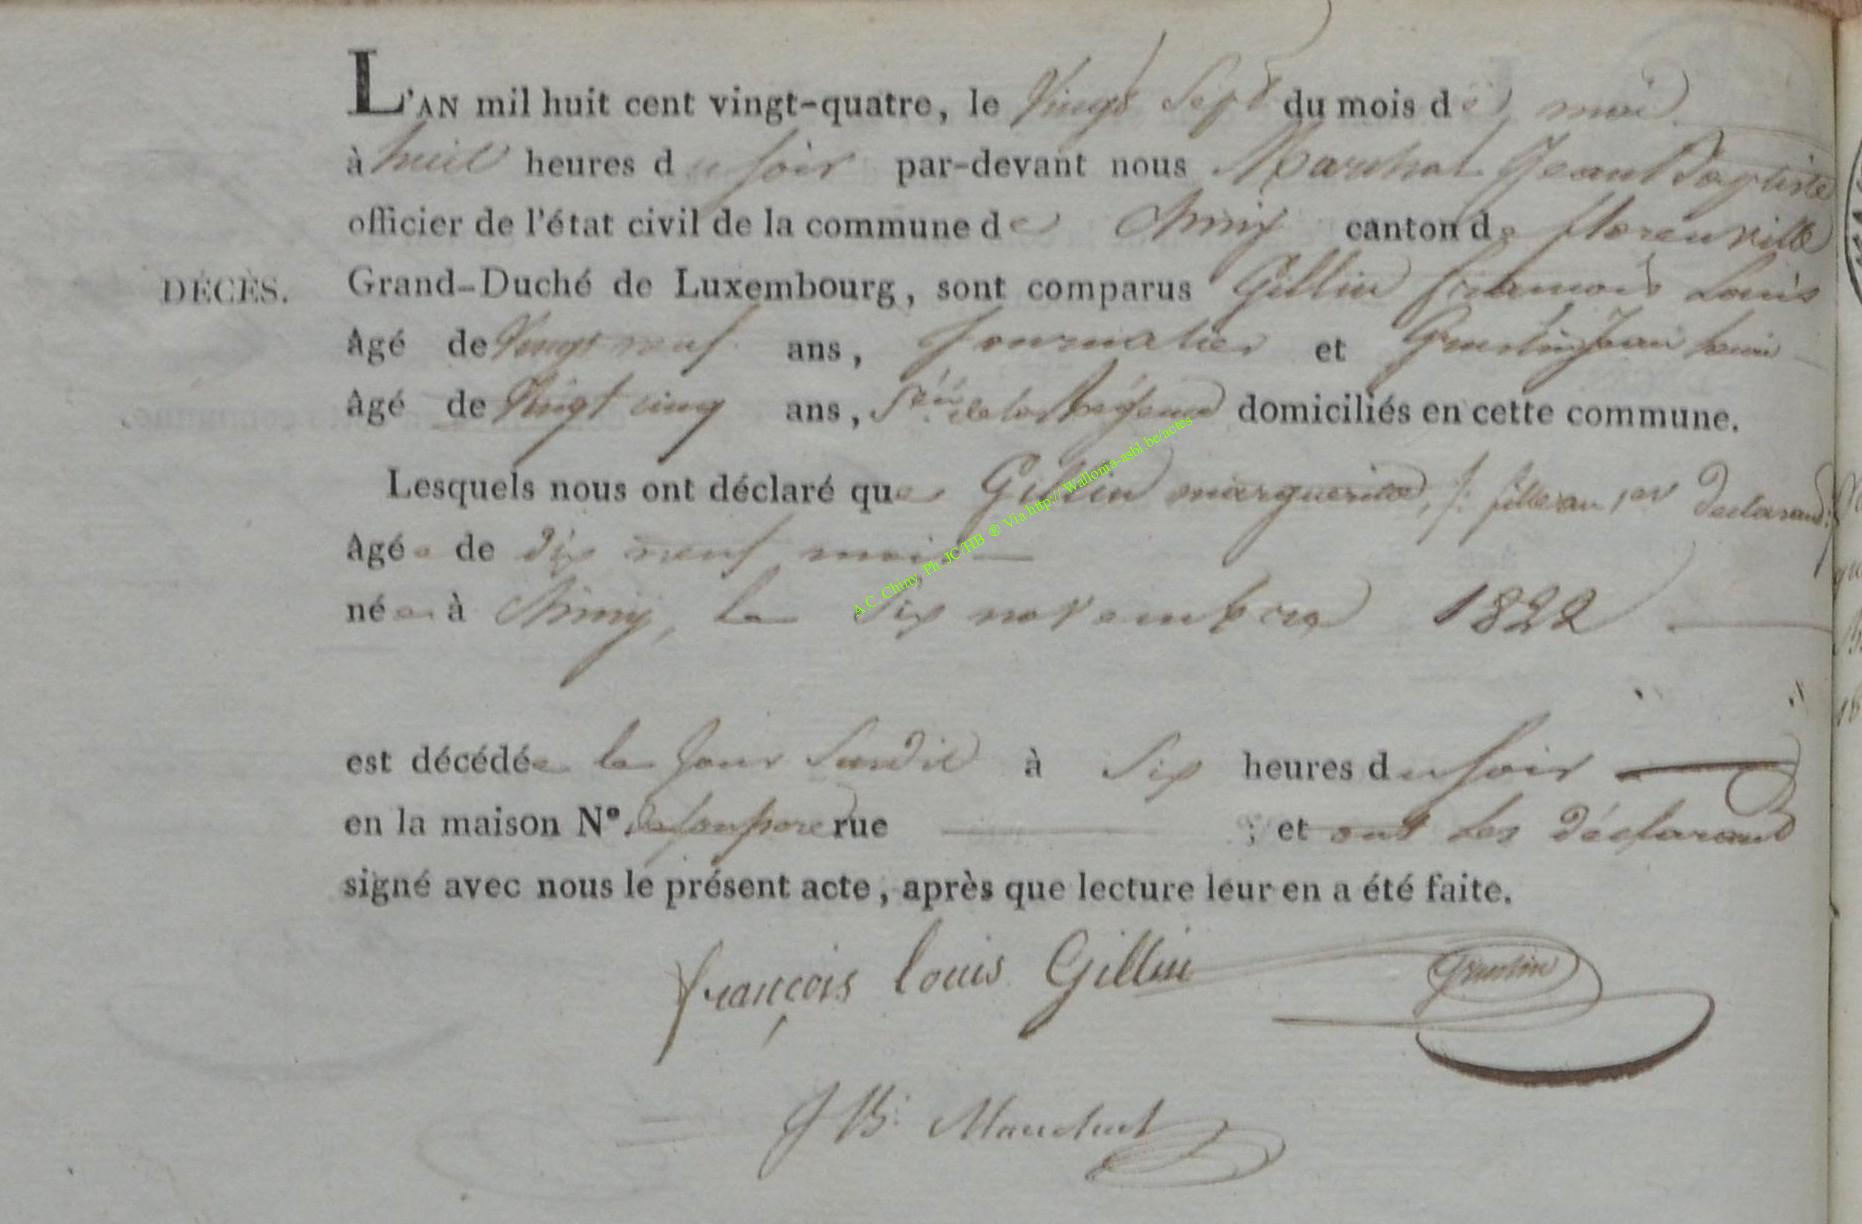 L'AN mil huit cent vingt-quatre, le Vingt Sept du mois de mai
à huit heures du soir par-devant nous Marchal Jean Baptiste
officier de l'état civil de la commune de Chiny canton de florenville
DÉCÈS. Grand-Duché de Luxembourg, sont comparus Gillin françois Louis
âgé de Vingt neuf ans, Journalier et Grustin Jean
âgé de Vingt cinq ans, domiciliés en cette commune.
Lesquels nous ont déclaré que Gillin marguerite, /: fille au 1er declarant :/
âgée de dix neuf mois
née à Chiny, le Six novembre 1822
est décédée le jour Susdit à Six heures du soir
en la maison N° de son pere rue ; et ont les déclarant
signé avec nous le présent acte, après que lecture leur en a été faite.
françois louis Gillin Grustin
J B: Marchal
A.C. Chiny, Ph. JC/HB ® Via http://Wallonia-asbl.be/actes